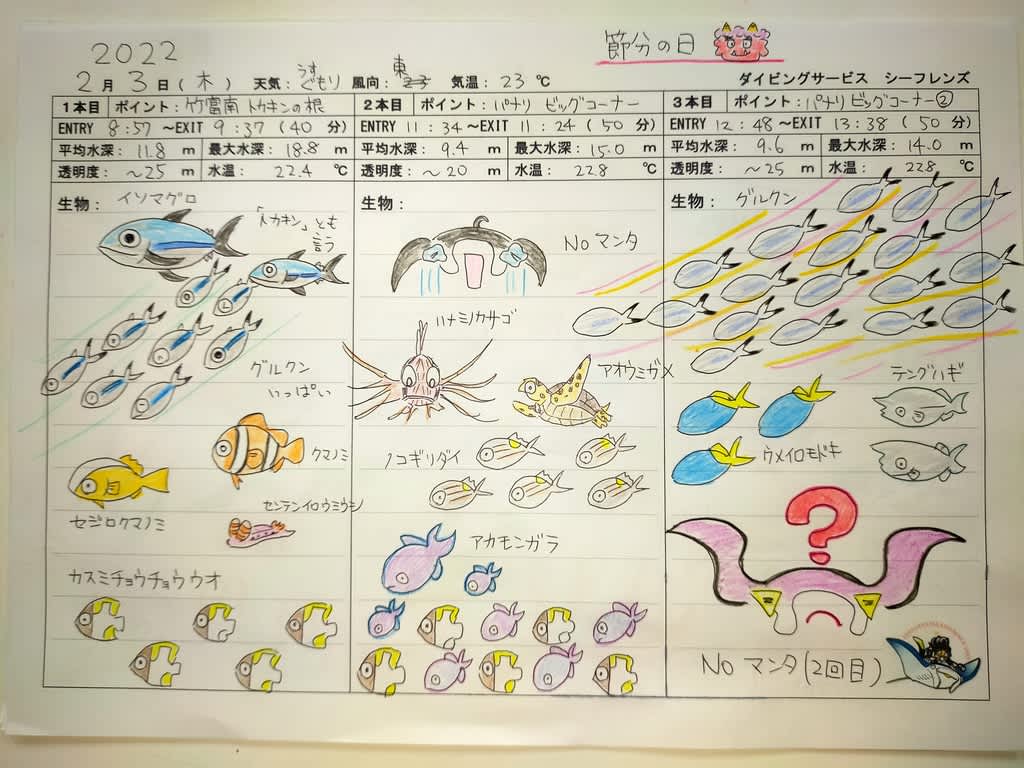 節分の日
2022
2月 3日(木) 天気: うすぐもり 風向: 東 気温: 23 ℃ ダイビングサービス シーフレンズ
1本目 ポイント: 竹富南 トカキンの根
ENTRY 8:57 ～EXIT 9:37 (40 分)
平均水深: 11.8 m 最大水深: 18.8 m
透明度: ～25 m 水温: 22.4 ℃
生物: イソマグロ
「トカキン」とも
言う
グルクン
いっぱい
クマノミ
センテンイロウミウシ
セジロクマノミ
カスミチョウチョウウオ
2本目 ポイント: パナリ ビッグコーナー
ENTRY 11:34 ～EXIT 11:24 (50 分)
平均水深: 9.4 m 最大水深: 15.0 m
透明度: ～20 m 水温: 22.8 ℃
生物:
No マンタ
ハナミノカサゴ
アオウミガメ
ノコギリダイ
アカモンガラ
3本目 ポイント: パナリ ビッグコーナー②
ENTRY 12:48 ～EXIT 13:38 (50 分)
平均水深: 9.6 m 最大水深: 14.0 m
透明度: ～25 m 水温: 22.8 ℃
生物: グルクン
テングハギ
ウメイロモドキ
?
No マンタ(2回目)